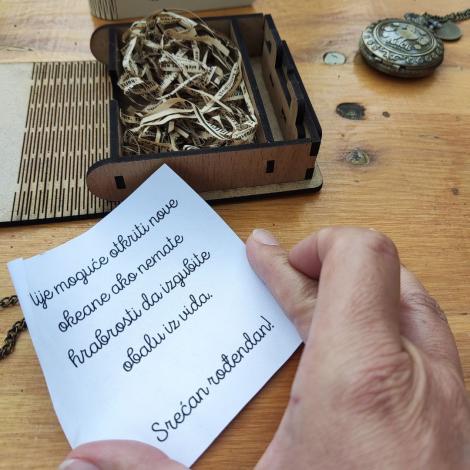 Nije moguće otkriti nove
okeane ako nemate
hrabrosti da izgubite
obalu iz vida.
Srećan rođendan!